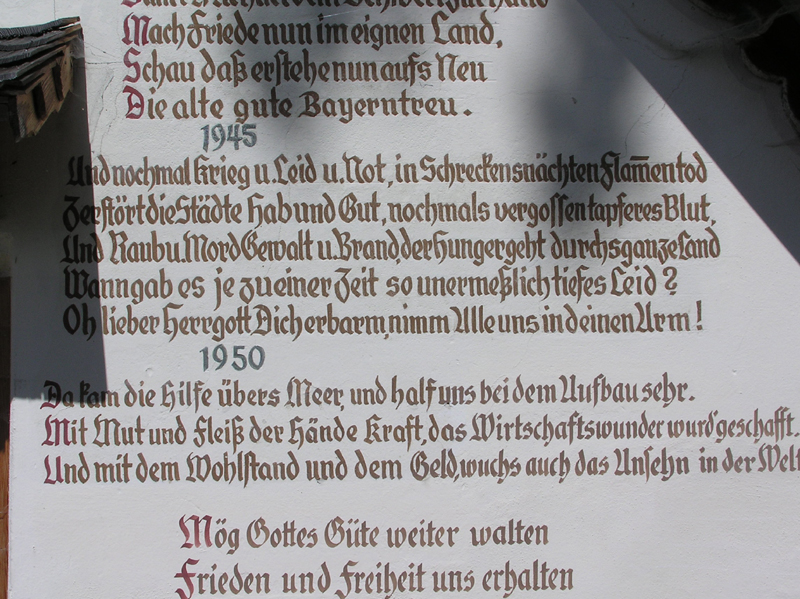 Mach Friede nun im eignen Land,
Schau daß erstehe nun aufs Neu
Die alte gute Bayerntreu.
1945
Und nochmal Krieg u. Leid u. Not, in Schreckensnächten Flam̅entod
Zerstört die Städte Hab und Gut, nochmals vergossen tapferes Blut,
Und Raub u. Mord Gewalt u. Brand, der Hunger geht durchs ganze Land
Wann gab es je zu einer Zeit so unermeßlich tiefes Leid?
Oh lieber Herrgott Dich erbarm, nimm Alle uns in deinen Arm!
1950
Da kam die Hilfe übers Meer, und half uns bei dem Aufbau sehr.
Mit Mut und Fleiß der Hände Kraft, das Wirtschaftswunder wurd' geschafft.
Und mit dem Wohlstand und dem Geld, wuchs auch das Ansehn in der Welt
Mög Gottes Güte weiter walten
Frieden und Freiheit uns erhalten